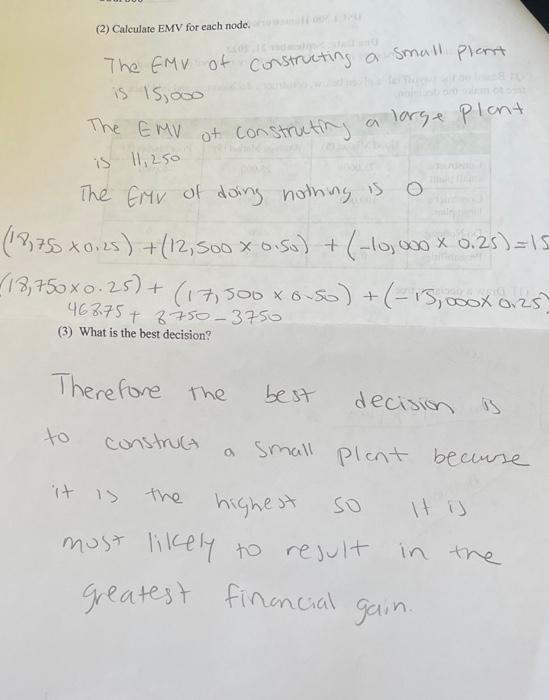 (2) Calculate EMV for each node.
The EMV of constructing a small plant
is 15,000
The EMV of constructing a large plant
is 11,250
The EMV of doing nothing is 0
(18,750 x 0.25) + (12,500 x 0.50) + (-10,000 x 0.25) = 15
(18,750 x 0.25) + (17,500 x 0.50) + (-15,000 x 0.25)
46875 + 8750 - 3750
(3) What is the best decision?
Therefore the best decision is
to construct a small plant because
it is the highest so it is
most likely to result in the
greatest financial gain.